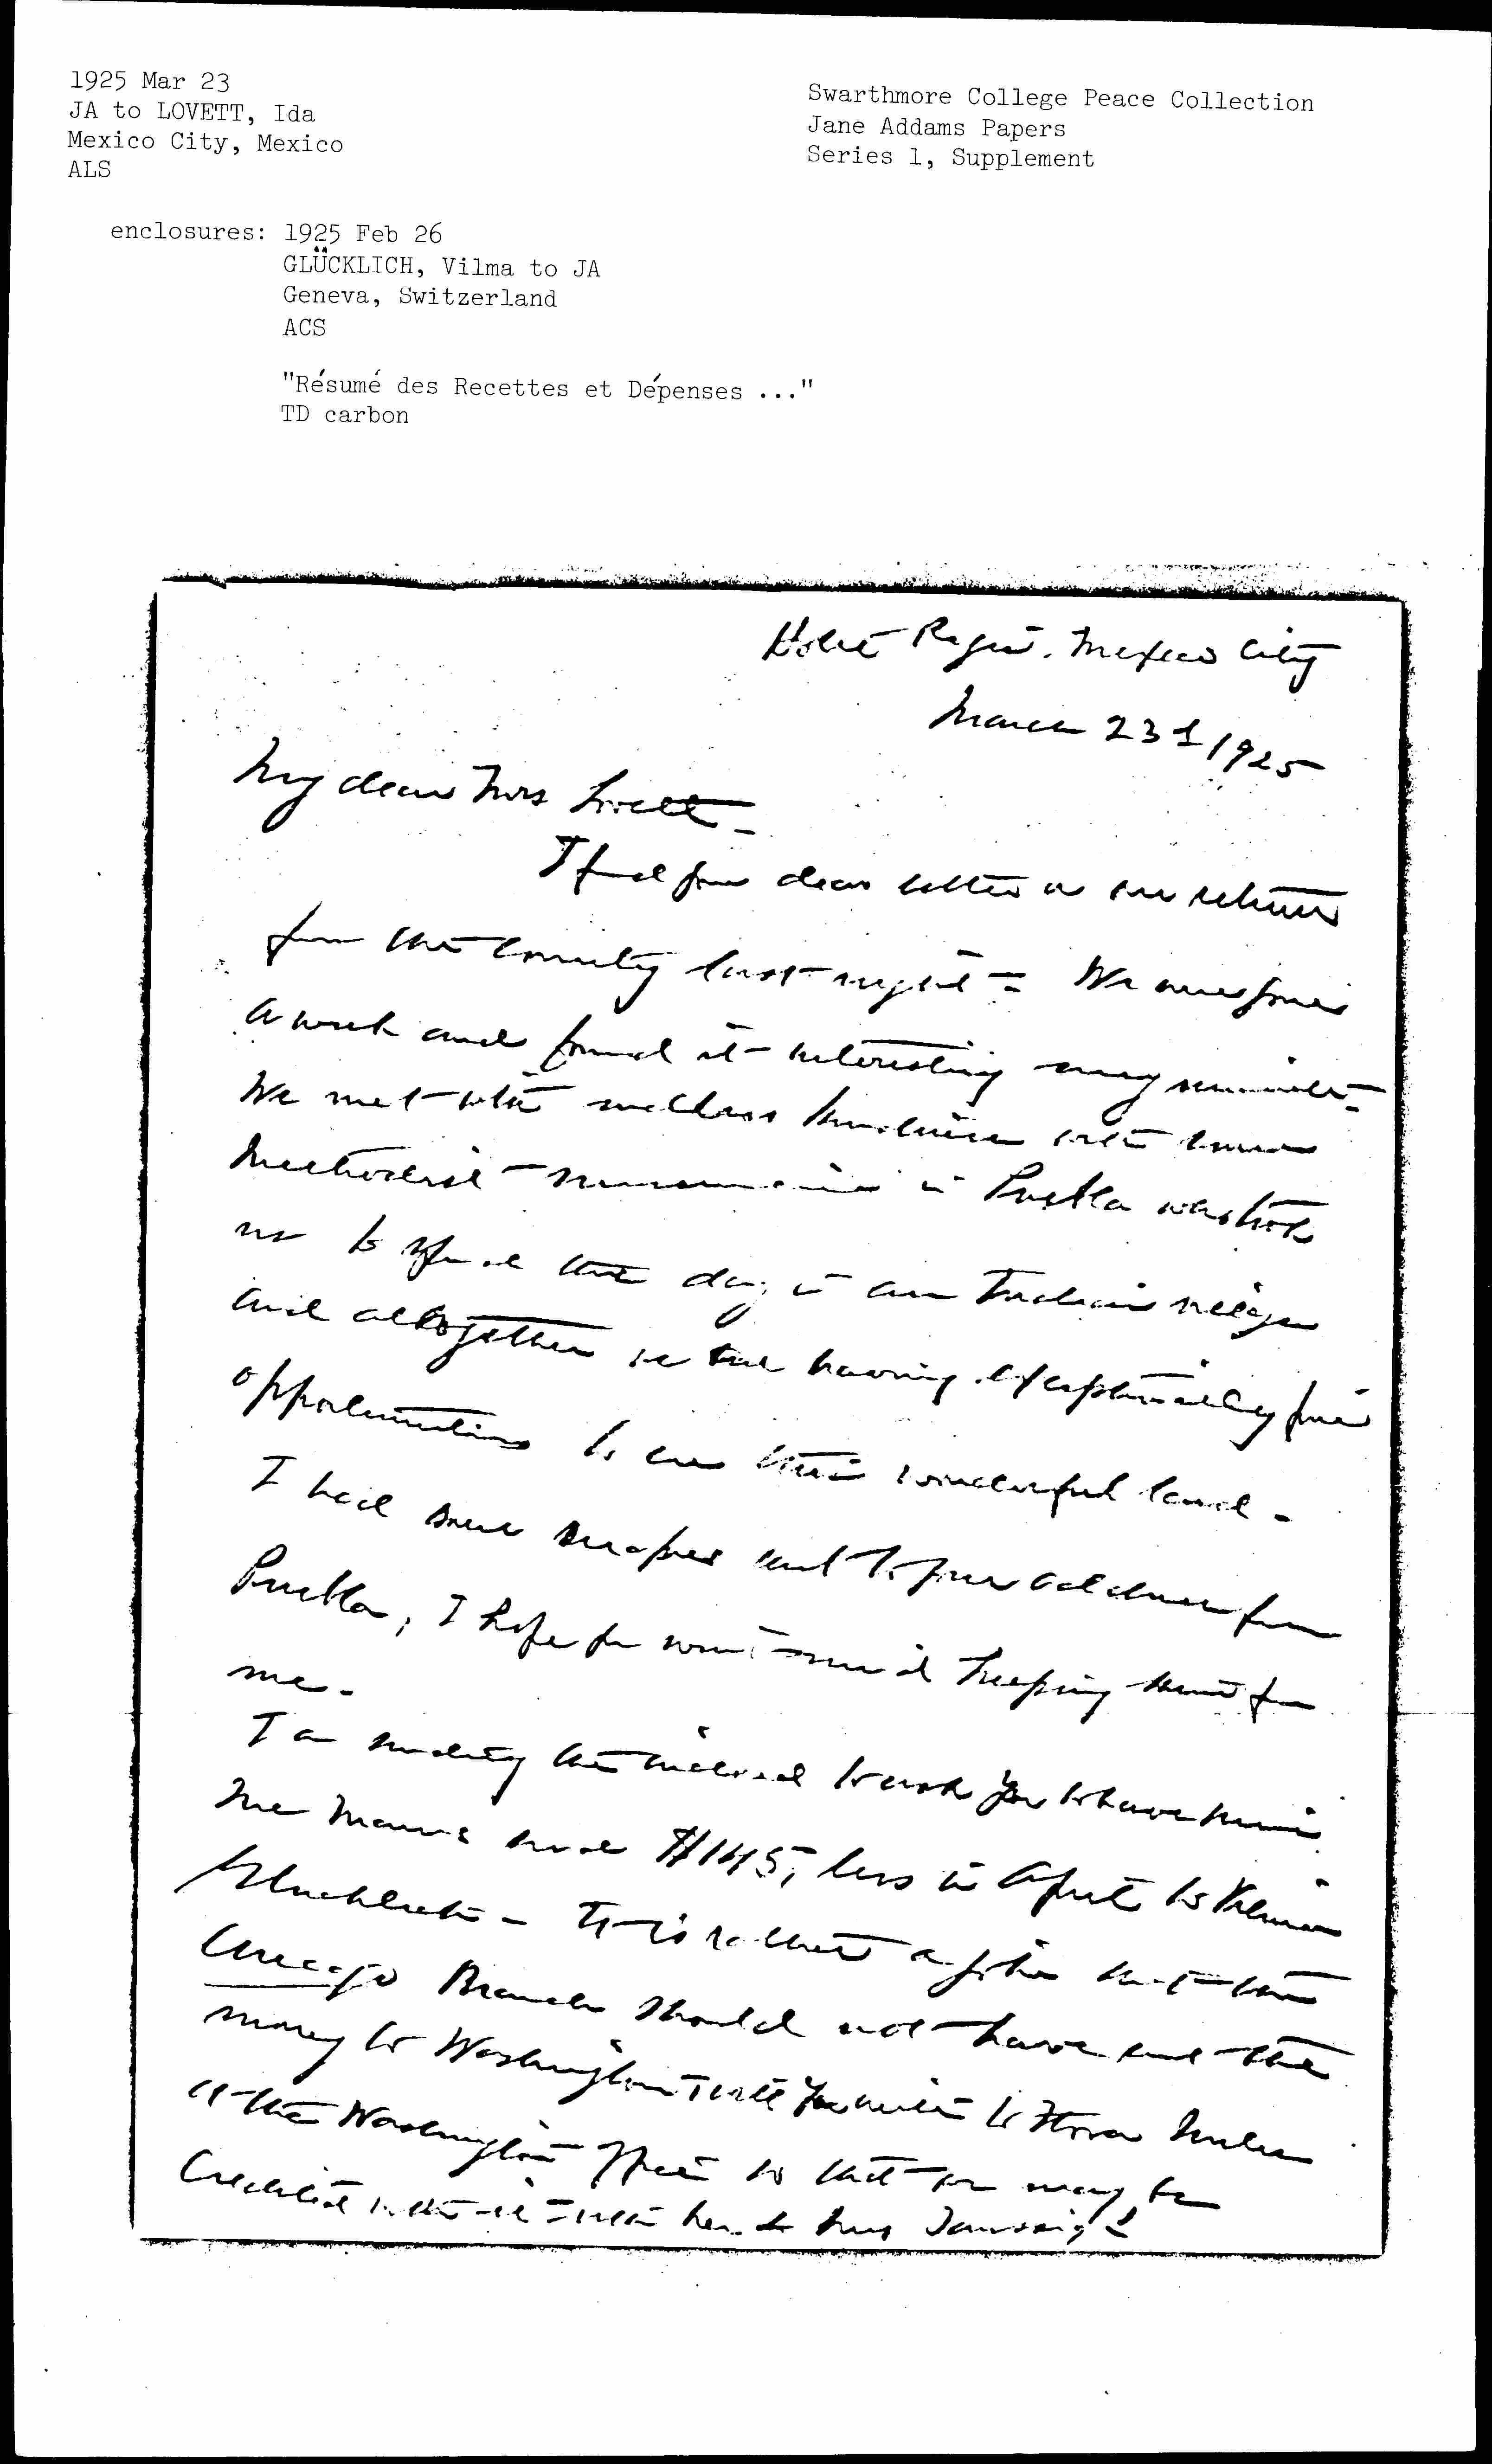 1925 Mar 23
JA to LOVETT, Ida
Mexico City, Mexico
ALS
Swarthmore College Peace Collection
Jane Addams Papers
Series 1, Supplement
enclosures: 1925 Feb 26
GLÜCKLICH, Vilma to JA
Geneva, Switzerland
ACS
"Résumé des Recettes et Dépenses ..."
TD carbon
Hotel Regis. Mexico City
March 23d 1925
My dear Mrs Lovett -
I find your dear letter on our return
from the country last night - We were gone
a week and found it interesting every minute -
We met with endless kindness with some
Methodist missionaries in Puebla who took
us to spend the day in an Indian village
and altogether we are having exceptionally fine
opportunities to see this wonderful land -
I had some serapes sent to your address from
Puebla, I hope you won't mind keeping them for
me -
I am sending the enclosed to ask you to have
Mrs send $145, less in April to Vilma
Glücklich - It is rather a joke that the
Chicago Branch should not have sent the
money to Washington I will you write to
at the Washington Office so that we may be
credited with it - with her &